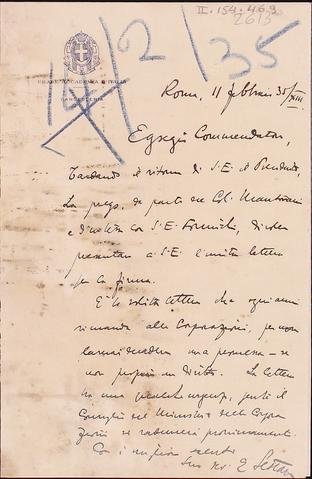 II. 154.469
2613
14/2/35
REALE ACCADEMIA D'ITALIA
CANCELLERIA
Roma, 11 febbraio 35/XIII
Egregio Commendatore,
Tardando il ritorno di S.E. il Presidente,
La prego, da parte del Col.
e d'intesa con S.E. Formichi, di voler
presentare a S.E. l'unita lettera
per la firma.
È la solita lettera che ogni anni
rimanda alle Corporazioni, per non
una promessa – se
non proprio un diritto. La lettera
ha una qualche urgenza, perché il
Consiglio del Ministero delle Corpo
razioni si radunerà prossimamente.
Con i migliori saluti
Suo